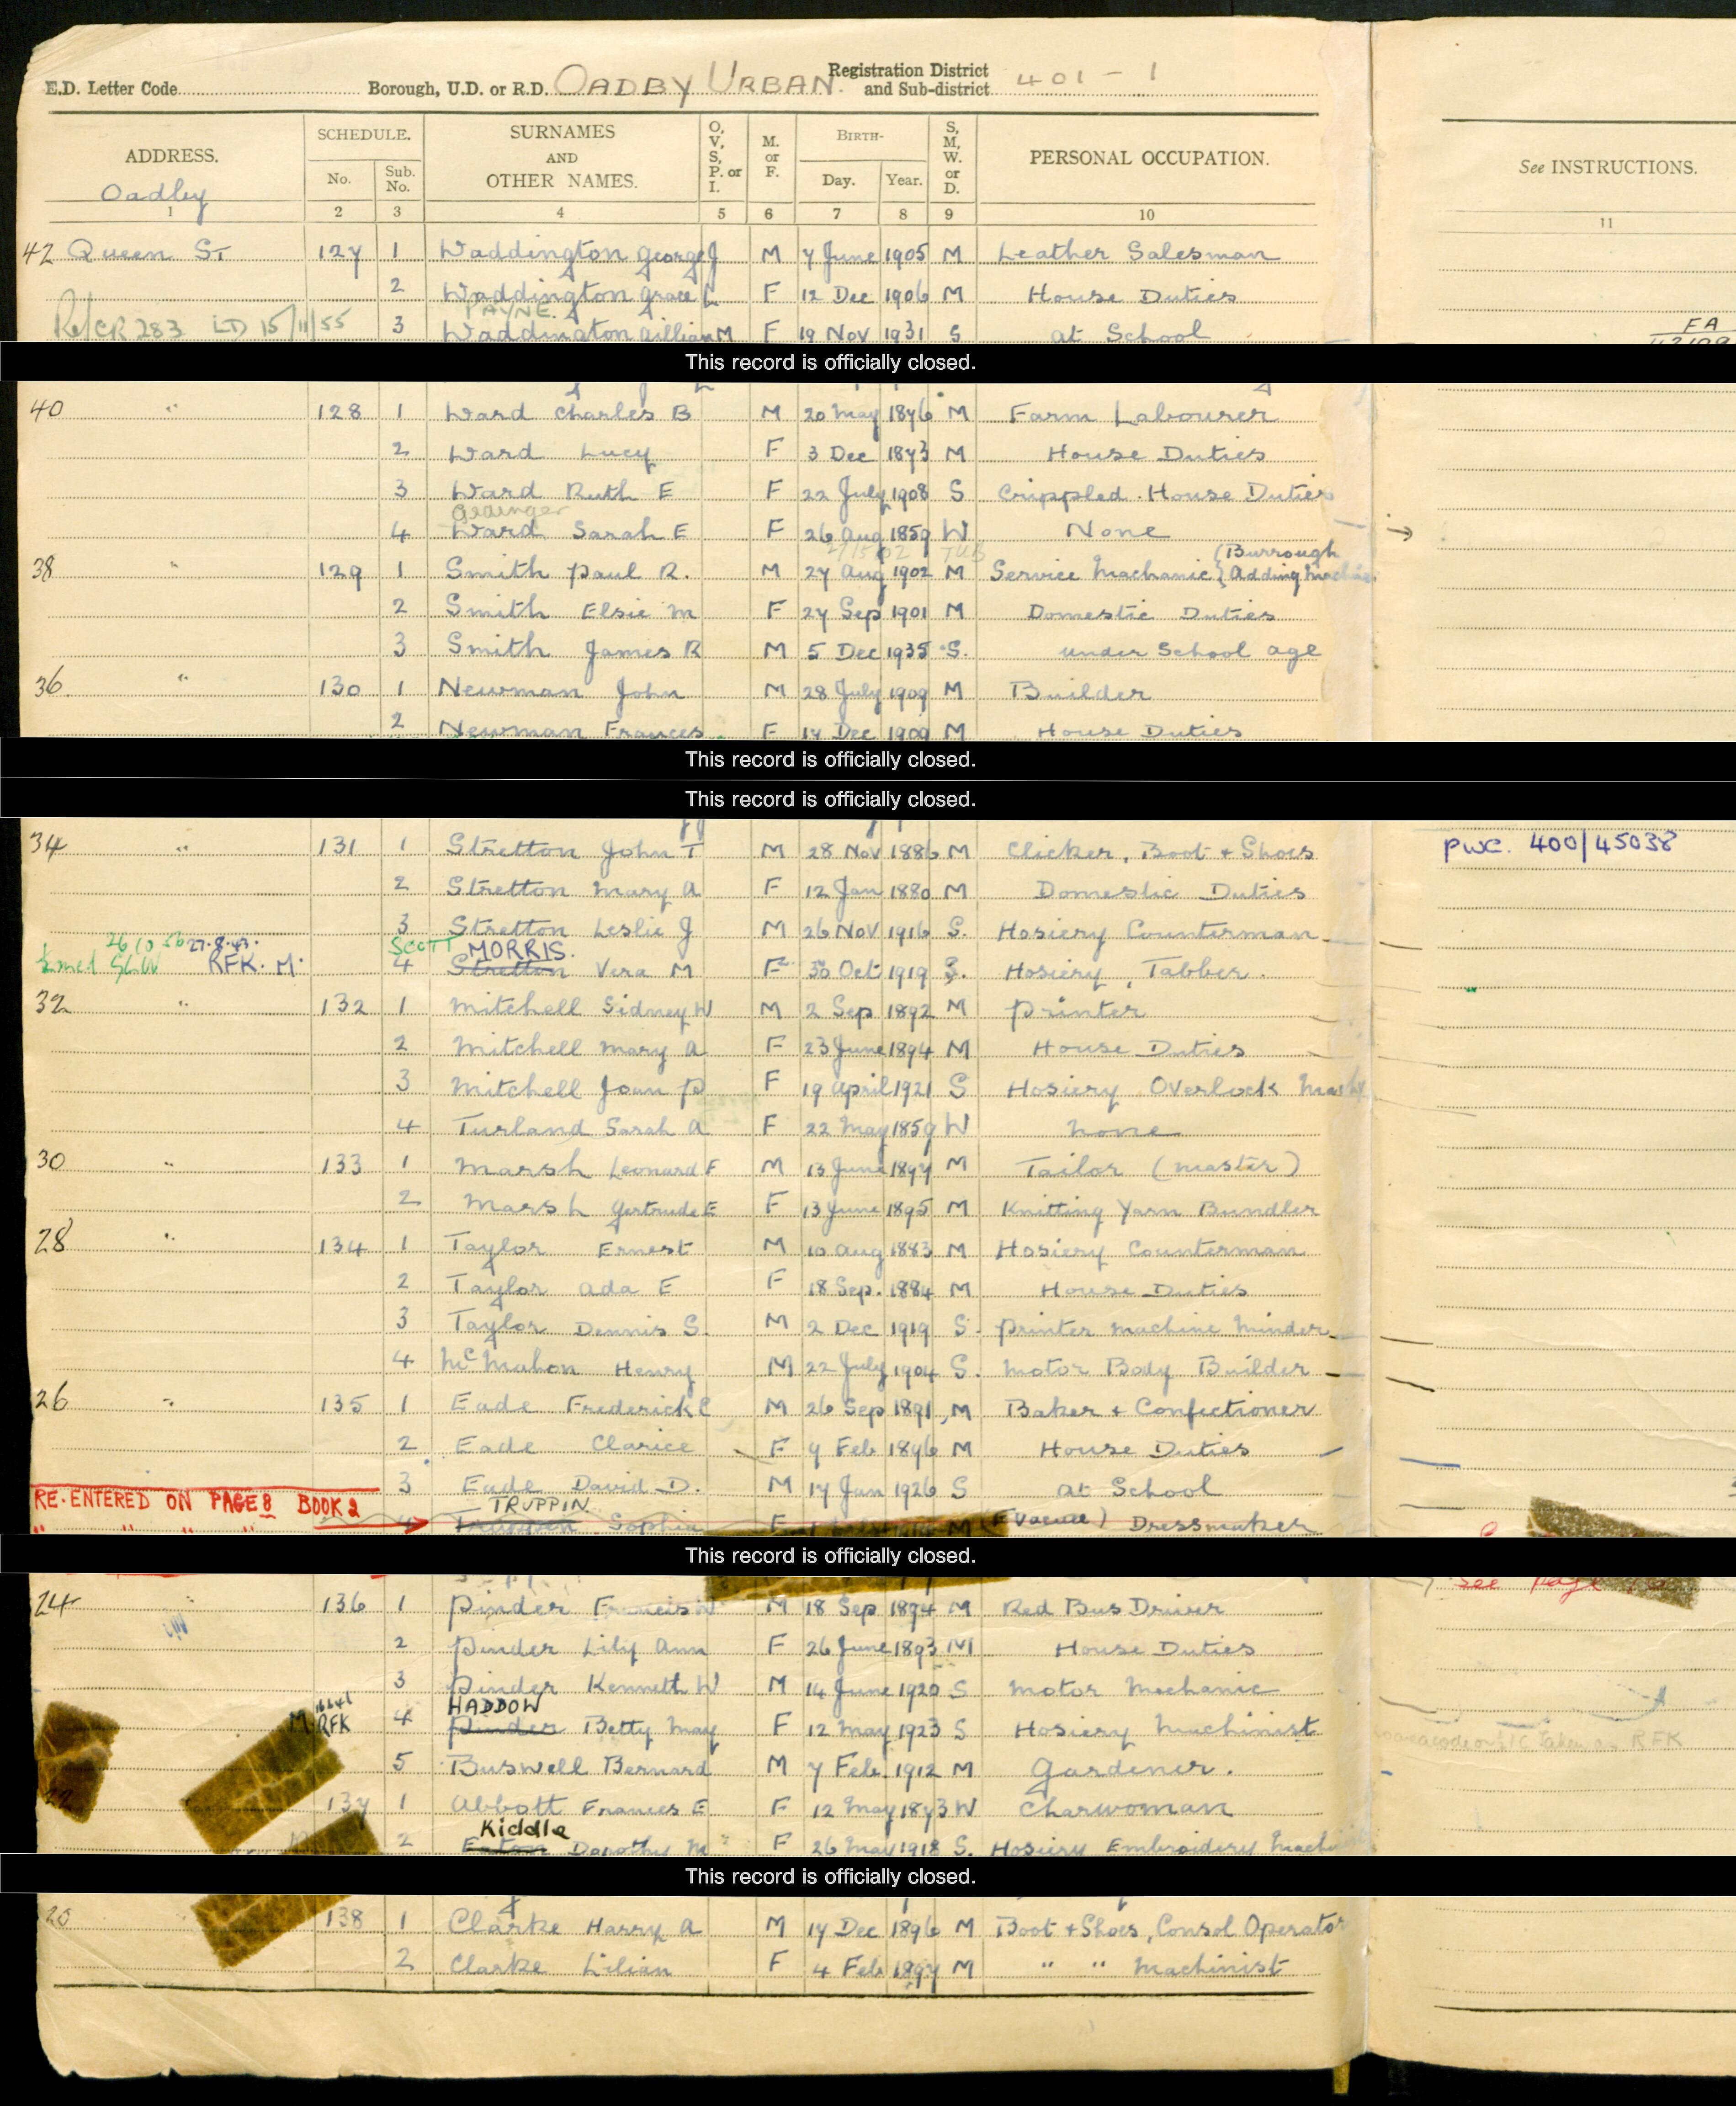 E.D. Letter Code Borough, U.D. or R.D. OADBY URBAN. Registration District and Sub-district 401 - 1
ADDRESS. SCHEDULE. SURNAMES AND OTHER NAMES. O, V, S, P. or I. M. or F. BIRTH- S, M, W. or D. PERSONAL OCCUPATION. See INSTRUCTIONS.
Oadby No. Sub. No. Day. Year.
1 2 3 4 5 6 7 8 9 10 11
42 Queen St 127 1 Waddington George J M 7 June 1905 M Leather Salesman
2 Waddington Grace L F 12 Dec 1906 M House Duties
PAYNE.
Ref CR 283 LD 15/11/55 3 Waddington Gillian M F 19 Nov 1931 S at School FA
This record is officially closed.
40 " 128 1 Ward Charles B M 20 May 1876 M Farm Labourer
2 Ward Lucy F 3 Dec 1873 M House Duties
3 Ward Ruth E F 22 July 1908 S Crippled. House Duties
4 Ward Sarah E F 26 Aug 1859 W None
38 " 129 1 Smith Paul R. M 27 Aug 1902 M Service Machanic { (Burrough Adding Machine
2 Smith Elsie M F 27 Sep 1901 M Domestic Duties
3 Smith James R M 5 Dec 1935 S. under School age
36 " 130 1 Newman John M 28 July 1909 M Builder
2 Newman Frances F 17 Dec 1909 M House Duties
This record is officially closed.
This record is officially closed.
34 " 131 1 Stretton John T M 28 Nov 1886 M Clicker, Boot + Shoes PWC. 400/45038
2 Stretton Mary A F 12 Jan 1880 M Domestic Duties
3 Stretton Leslie J M 26 Nov 1916 S. Hosiery Counterman
26 10 56 27.8.43. SCOTT MORRIS.
RFK. M. 4 Stretton Vera M F 30 Oct 1919 S. Hosiery, Tabber.
32 " 132 1 Mitchell Sidney W M 2 Sep 1892 M Printer
2 Mitchell Mary A F 23 June 1894 M House Duties
3 Mitchell Joan P F 19 April 1921 S Hosiery Overlock
4 Turland Sarah A F 22 May 1859 W None
30 " 133 1 Marsh Leonard F M 13 June 1897 M Tailor (Master)
2 Marsh Gertrude E F 13 June 1895 M Knitting Yarn Bundler
28 " 134 1 Taylor Ernest M 10 Aug 1883 M Hosiery Counterman
2 Taylor Ada E F 18 Sep. 1884 M House Duties
3 Taylor Dennis S. M 2 Dec 1919 S. Printer Machine Minder
4 McMahon Henry M 22 July 1904 S. Motor Body Builder
26 " 135 1 Eade Frederick C M 26 Sep 1891 M Baker + Confectioner
2 Eade Clarice F 9 Feb 1896 M House Duties
3 Eade David D. M 17 Jan 1926 S at School
RE-ENTERED ON PAGE 8 BOOK 2 TRUPPIN
4 Sophia F M (Evacuee) Dressmaker
This record is officially closed.
See Page
24 " 136 1 Pinder Francis W M 18 Sep 1894 M Red Bus Driver
2 Pinder Lily Ann F 26 June 1893 M House Duties
3 Pinder Kenneth W M 14 June 1920 S Motor Mechanic
HADDOW
M RFK 4 Pinder Betty May F 12 May 1923 S Hosiery Machinist
taken as RFK
5 Buswell Bernard M 7 Feb. 1912 M Gardener.
22 137 1 Abbott Frances E F 12 May 1873 W Charwoman
Kiddle
2 Eaton Dorothy M F 26 May 1918 S. Hosiery Embroidery
This record is officially closed.
20 138 1 Clarke Harry A M 17 Dec 1896 M Boot + Shoes, Consol Operator
2 Clarke Lilian F 4 Feb 1897 M " " Machinist